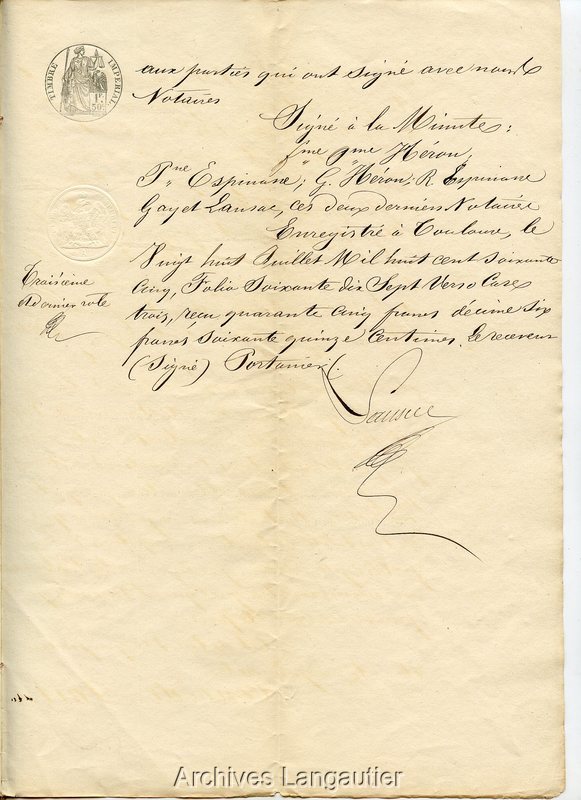 TIMBRE IMPERIAL
1F 50C
aux parties qui ont signé avec nous
Notaires
Signé à la Minute:
Jme Héron,
Pne Espinasse; G. Héron; R Espinasse
Gayet Lansac, ces deux derniers Notaires
Enregistré à Toulouse, le
Vingt huit Juillet Mil huit cent Soixante
Cinq, Folio Soixante dix Sept Verso Case
trois, reçu quarante cinq francs décime Six
francs Soixante quinze centimes. Le receveur
(Signé) Portanier.
Troisième
et dernier role
Lansac
Archives Langautier